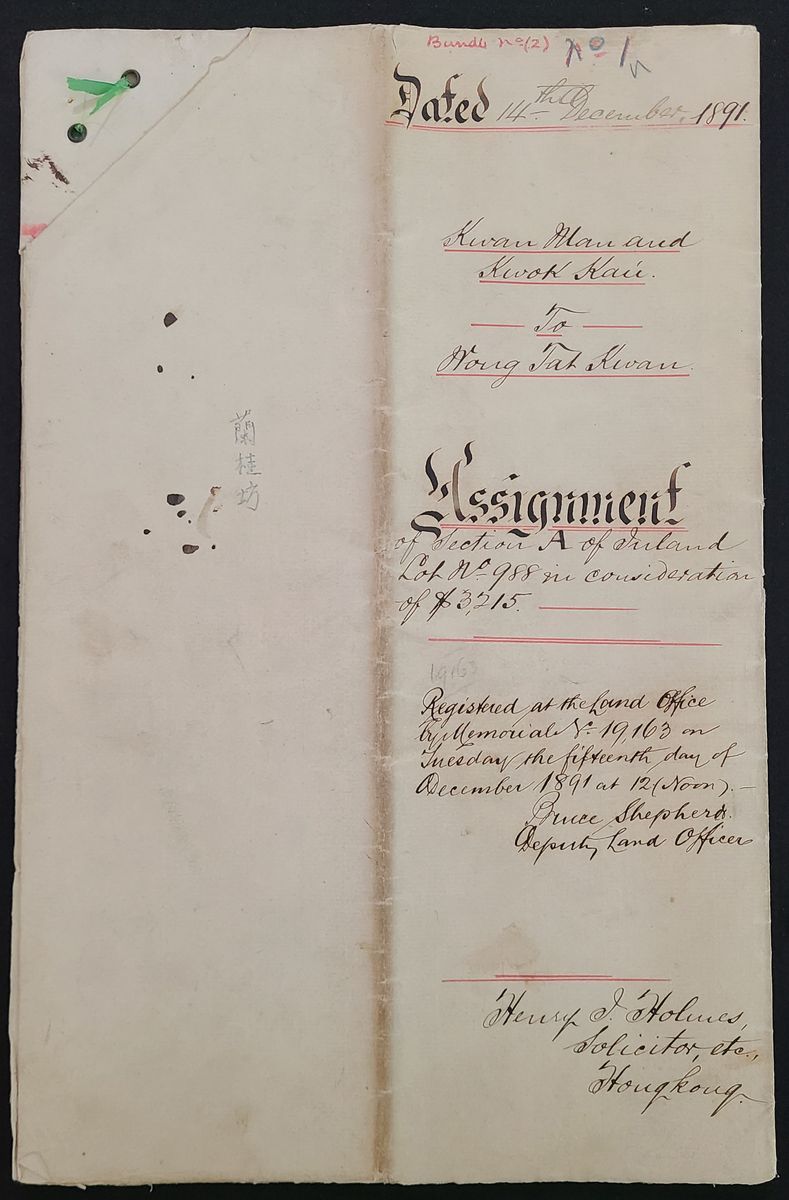 Bundle No (2) No 1
Dated 14th December, 1891.
Kwan Man and
Kwok Kaü.
To
Wong Tat Kwan.
蘭桂坊
Assignment
of Section A of Inland
Lot No 988 in consideration
of $3,215.
19163
Registered at the Land Office
by Memorial No 19,163 on
Tuesday the fifteenth day of
December 1891 at 12 (Noon).—
Bruce Shepherd.
Deputy Land Officer
Henry J. Holmes,
Solicitor, etc.,
Hongkong.